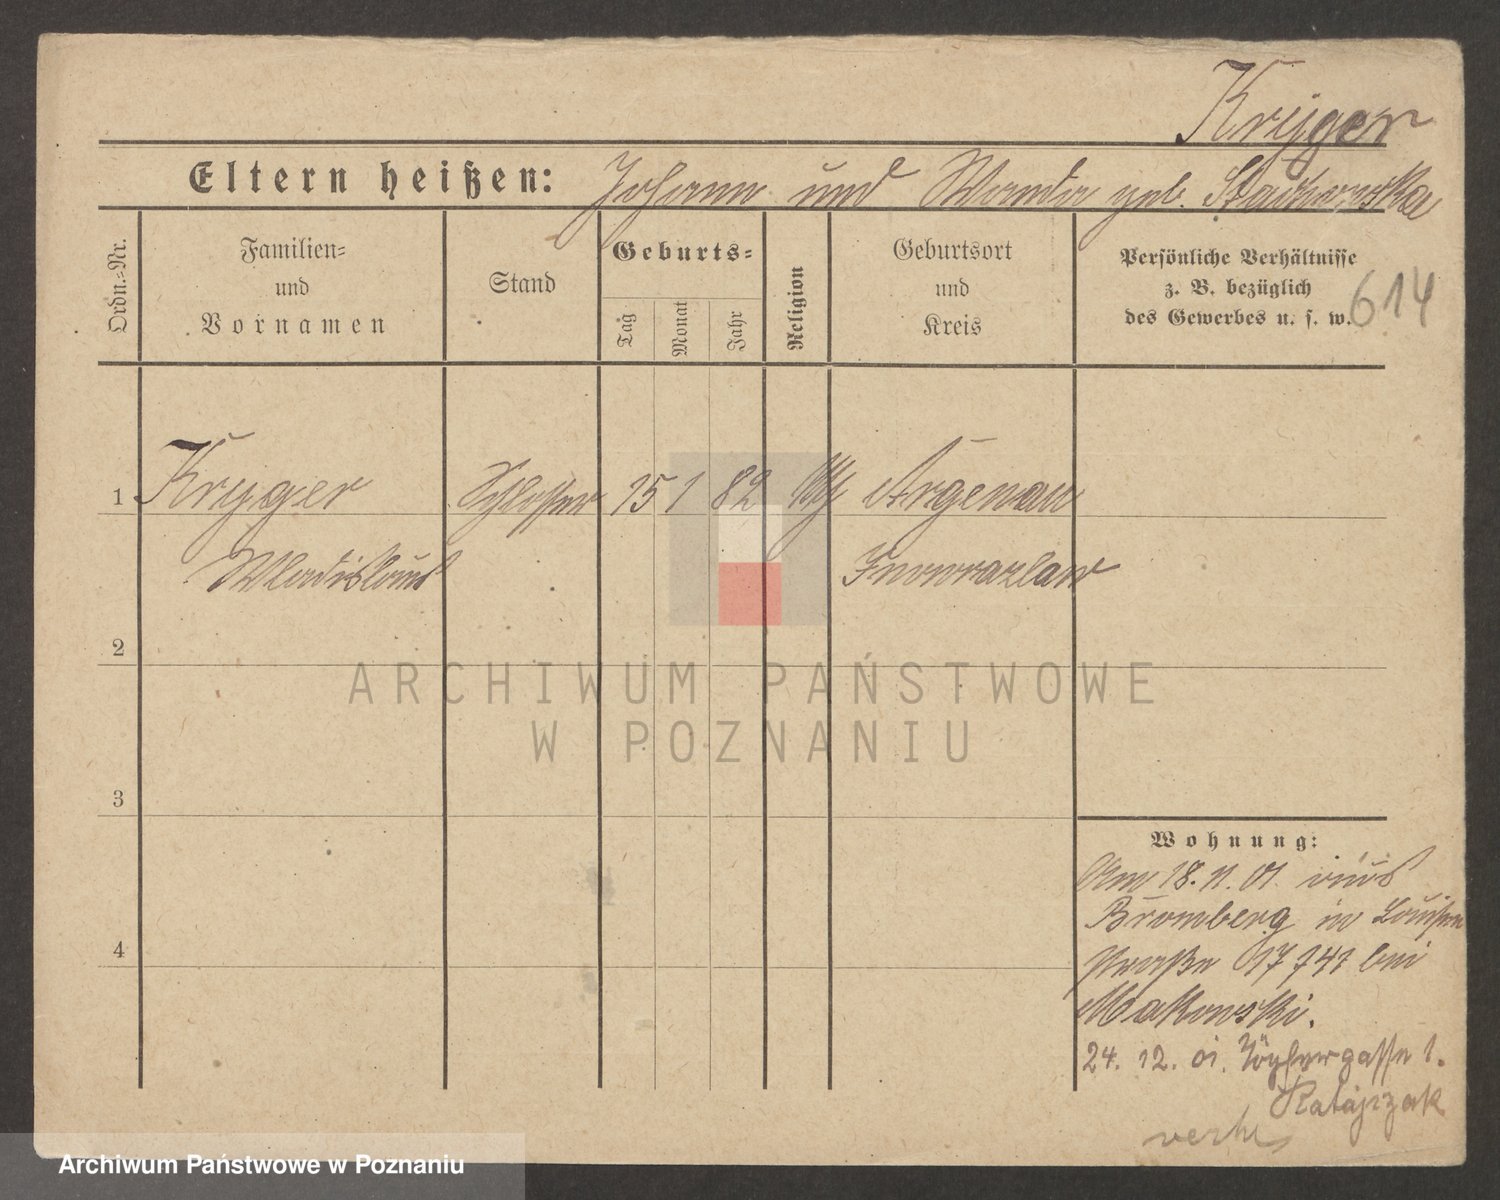 Kryger
Eltern heißen: Johann und Wanda geb. Stachowska
Ordn.-Nr.
Familien-
und
Vornamen
Stand
Geburts-
Tag
Monat
Jahr
Religion
Geburtsort
und
Kreis
Persönliche Verhältnisse
z. B. bezüglich
des Gewerbes u. s. w.
614
1 Kryger Schlosser 15 1 82 Argenau
Wladislaus Inowrazlaw
2
3
4
Wohnung:
Am 18. 11. 01. aus
Bromberg in Louisen
straße 17 bei
Makowski.
24. 12. 01. Töpfergasse 1.
Ratajczak
ARCHIWUM PAŃSTWOWE
W POZNANIU
Archiwum Państwowe w Poznaniu